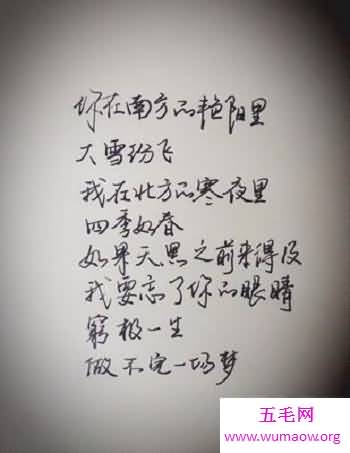 你在南方的艳阳里
大雪纷飞
我在北方的寒夜里
四季如春
如果天黑之前来得及
我要忘了你的眼睛
窮极一生
做不完一场梦
五毛网
www.wumaow.org